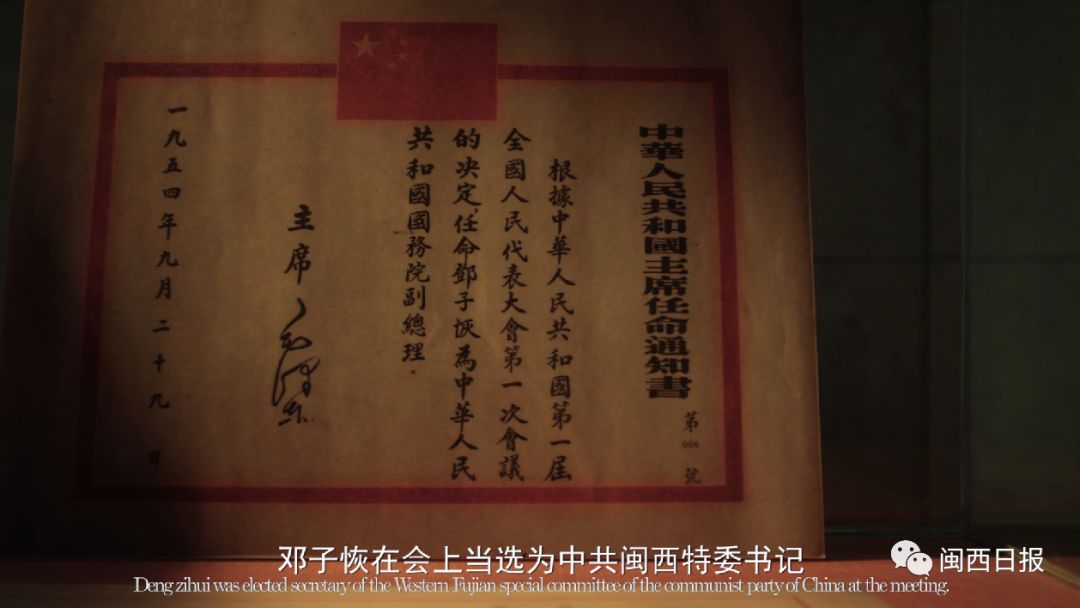 中華人民共和國主席任命通知書
第
006
號
根據中華人民共和國第一屆
全國人民代表大會第一次會議
的决定,任命鄧子恢為中華人民
共和國國務院副總理.
主席 毛澤东
一九五四年九月二十九日
邓子恢在会上当选为中共闽西特委书记
Deng zihui was elected secretary of the Western Fujian special committee of the communist party of China at the meeting.
闽西日报